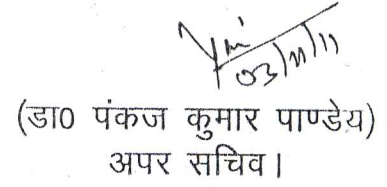 03/11/11
(डा0 पंकज कुमार पाण्डेय)
अपर सचिव।